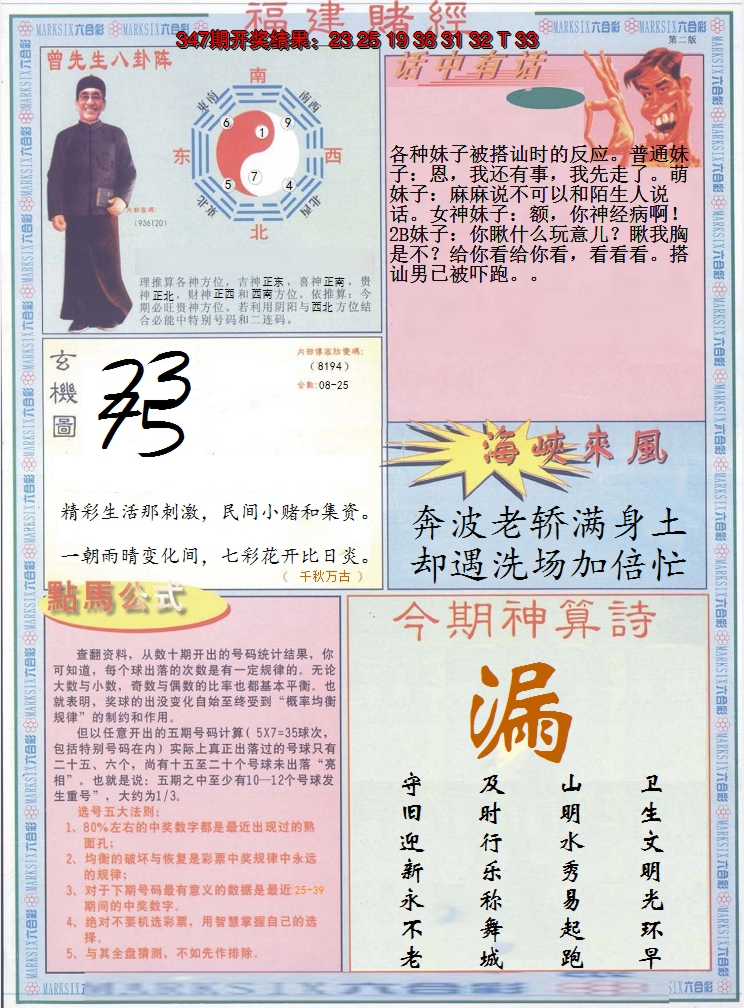 福建賭經
347期开奖结果：23 25 19 38 31 32 T 33
第二版
MARKSIX六合彩
曾先生八卦阵
南
东南
西南
6
1
9
东
西
5
7
4
东北
西北
北
内部密碼：
（936120）
理推算各神方位，吉神正东，喜神正南，贵
神正北，财神正西和西南方位。依推算：今
期必旺贵神方位。若利用阴阳与西北方位结
合必能中特别号码和二连码。
话中有话
各种妹子被搭讪时的反应。普通妹
子：恩，我还有事，我先走了。萌
妹子：麻麻说不可以和陌生人说
话。女神妹子：额，你神经病啊！
2B妹子：你瞅什么玩意儿？瞅我胸
是不？给你看给你看，看看看。搭
讪男已被吓跑。。
玄機圖
内部傳密防雙碼：
（8194）
合數：08-25
精彩生活那刺激，民间小赌和集资。
一朝雨晴变化间，七彩花开比日炎。
（ 千秋万古 ）
海峽來風
奔波老轿满身土
却遇洗场加倍忙
點馬公式
查翻资料，从数十期开出的号码统计结果，你
可知道，每个球出落的次数是有一定规律的。无论
大数与小数，奇数与偶数的比率也都基本平衡。也
就表明，奖球的出没变化自始至终受到“概率均衡
规律”的制约和作用。
但以任意开出的五期号码计算( 5X7=35球次，
包括特别号码在内) 实际上真正出落过的号球只有
二十五、六个，尚有十五至二十个号球未出落“亮
相”。也就是说：五期之中至少有10—12个号球发
生重号”，大约为1/3。
选号五大法则：
1、80%左右的中奖数字都是最近出现过的熟
面孔；
2、均衡的破坏与恢复是彩票中奖规律中永远
的规律；
3、对于下期号码最有意义的数据是最近25-39
期间的中奖数字。
4、绝对不要机选彩票，用智慧掌握自己的选
择。
5、与其全盘猜测，不如先作排除。
今期神算詩
漏
卫生文明光环早
山明水秀易起跑
及时行乐称舞城
守旧迎新永不老